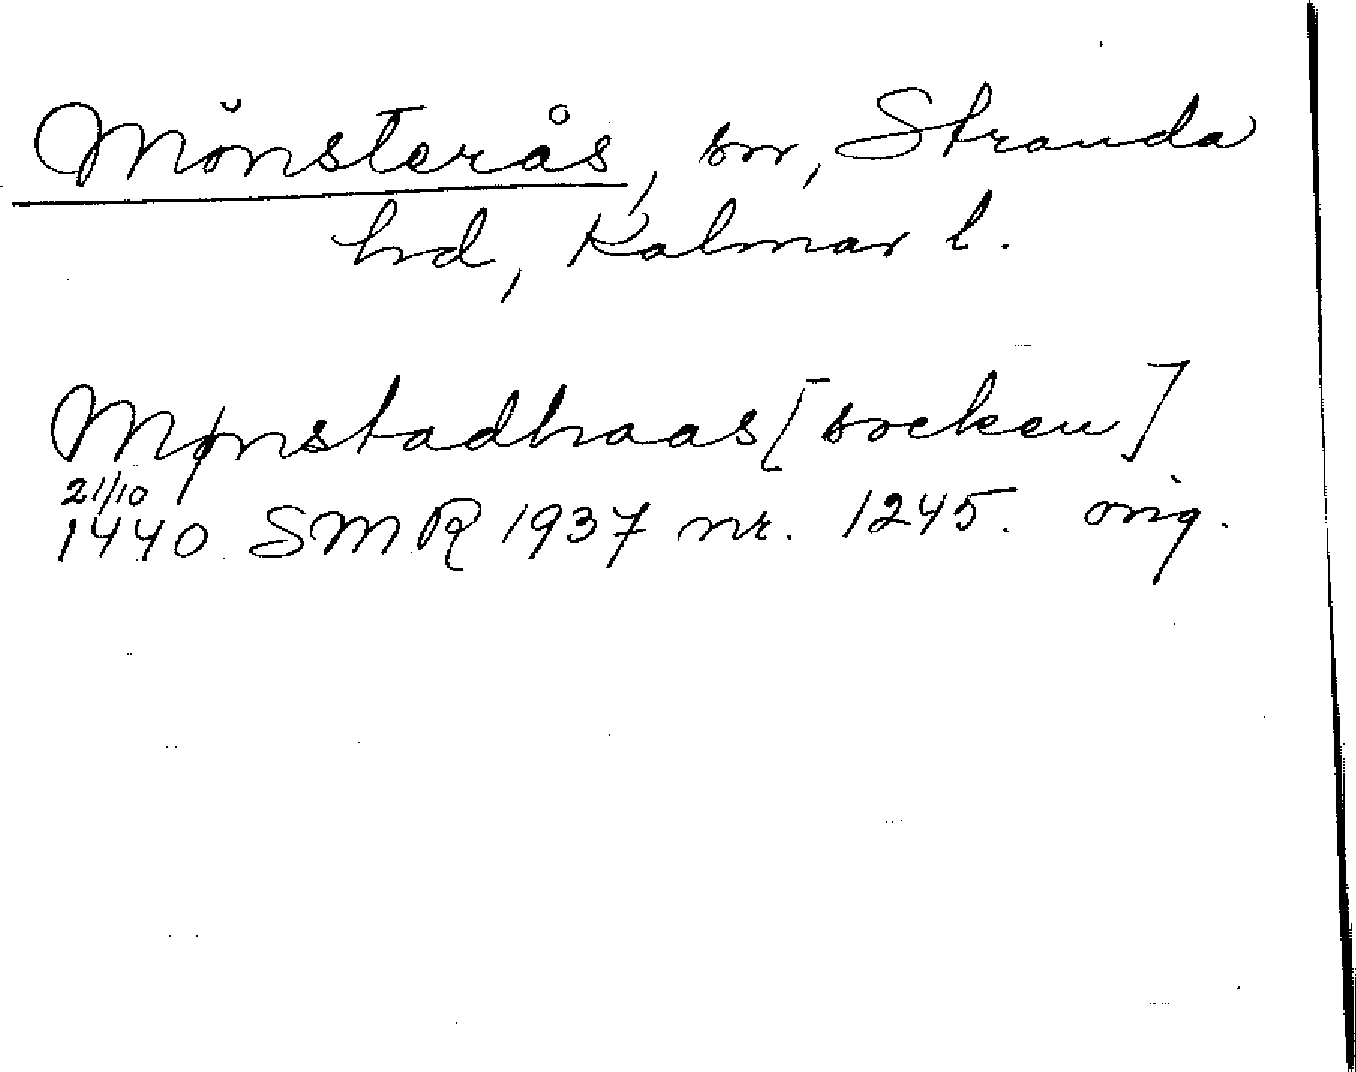 Mönsterås, sn, Stranda
hd, Kalmar l.
Mønstadhaas [socken]
21/10
1440 SMR 1937 nr. 1245. orig.